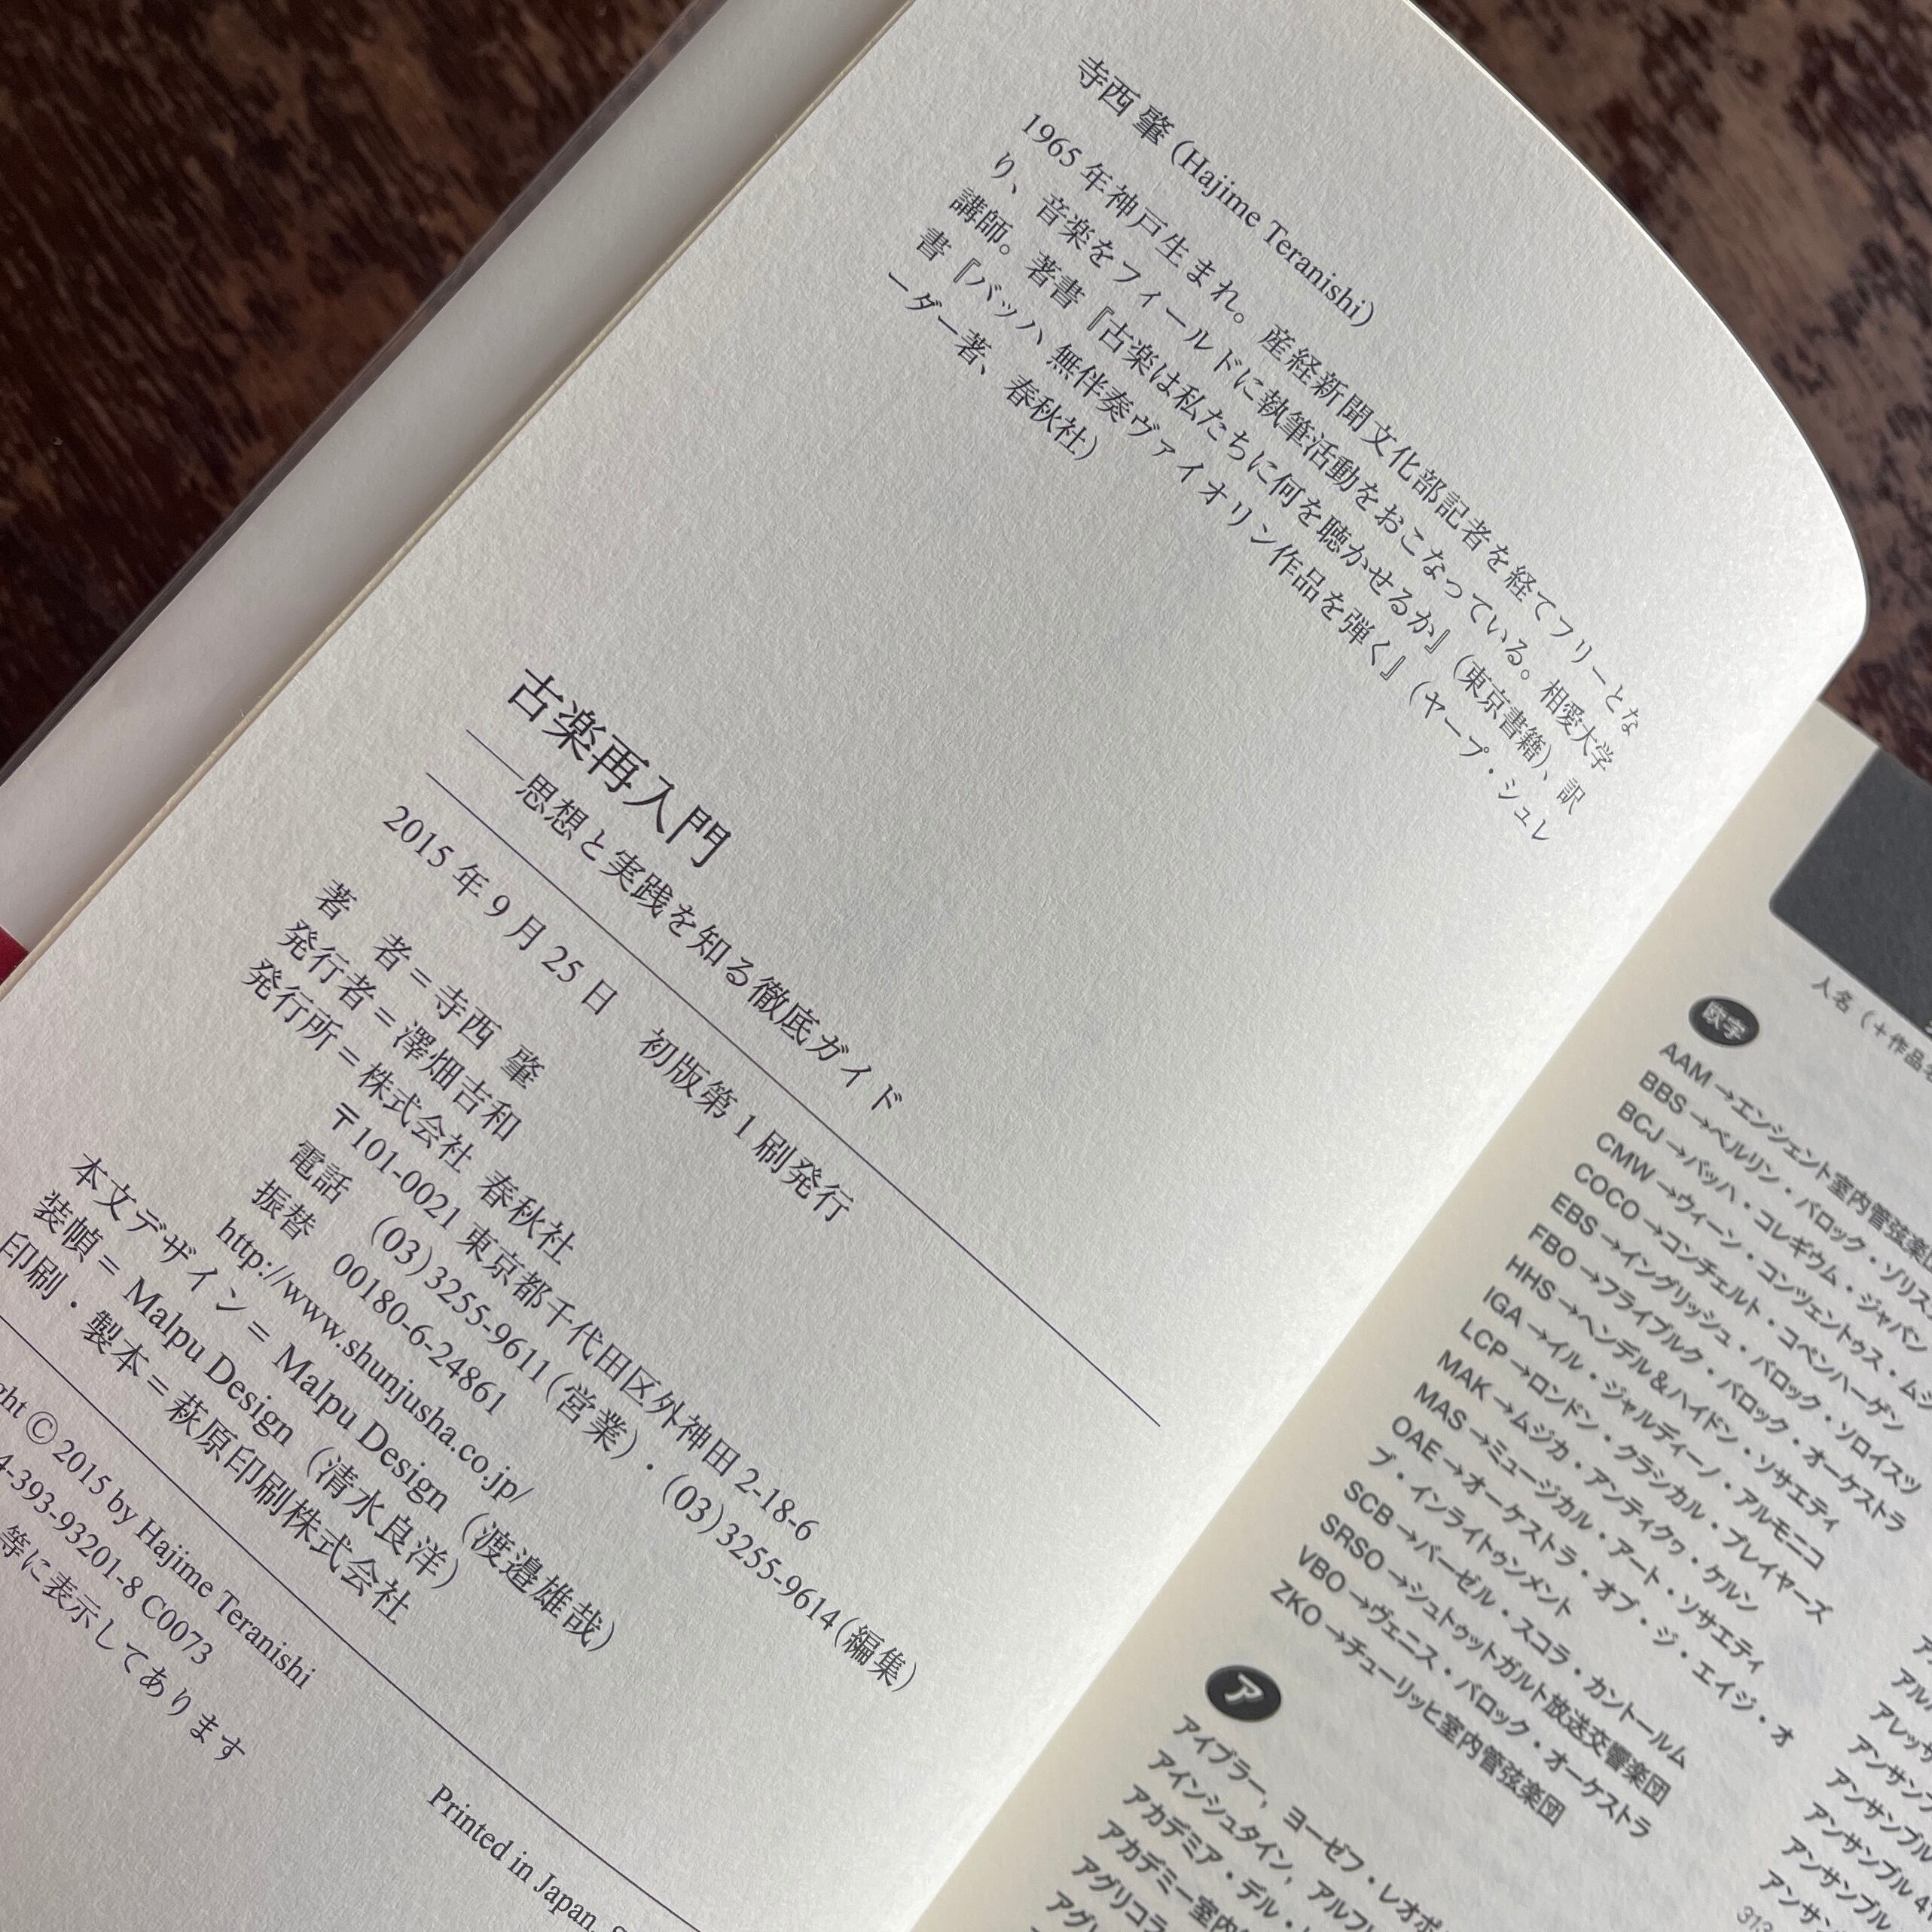 寺西 肇（Hajime Teranishi）
1965 年神戸生まれ。産経新聞文化部記者を経てフリーとな
り、音楽をフィールドに執筆活動をおこなっている。相愛大学
講師。著書『古楽は私たちに何を聴かせるか』（東京書籍）、訳
書『バッハ 無伴奏ヴァイオリン作品を弾く』（ヤープ・シュレ
ーダー著、春秋社）
古楽再入門
——思想と実践を知る徹底ガイド
2015 年 9 月 25 日　初版第 1 刷発行
著　者＝寺西 肇
発行者＝澤畑吉和
発行所＝株式会社 春秋社
〒101-0021 東京都千代田区外神田 2-18-6
電話　(03)3255-9611(営業)・(03)3255-9614(編集)
振替　00180-6-24861
http://www.shunjusha.co.jp/
本文デザイン＝ Malpu Design（渡邉雄哉）
装幀＝ Malpu Design（清水良洋）
印刷・製本＝萩原印刷株式会社
ght © 2015 by Hajime Teranishi
4-393-93201-8 C0073
等に表示してあります
Printed in Japan,
人名（＋作品名
欧字
AAM→エンシェント室内管弦楽団
BBS→ベルリン・バロック・ゾリス
BCJ→バッハ・コレギウム・ジャパン
CMW→ウィーン・コンツェントゥス・ムジ
COCO→コンチェルト・コペンハーゲン
EBS→イングリッシュ・バロック・ソロイスツ
FBO→フライブルク・バロック・オーケストラ
HHS→ヘンデル＆ハイドン・ソサエティ
IGA→イル・ジャルディーノ・アルモニコ
LCP→ロンドン・クラシカル・プレイヤーズ
MAK→ムジカ・アンティクヮ・ケルン
MAS→ミュージカル・アート・ソサエティ
OAE→オーケストラ・オブ・ジ・エイジ・オ
ブ・インライトゥンメント
SCB→バーゼル・スコラ・カントールム
SRSO→シュトゥットガルト放送交響楽団
VBO→ヴェニス・バロック・オーケストラ
ZKO→チューリッヒ室内管弦楽団
ア
アイブラー, ヨーゼフ・レオポ
アインシュタイン, アルフレ
アカデミア・デル・
アカデミー室内
アグリコラ
アレッサ
アンサンブ
アンサンブル
アンサンブル 4
アンサンブル
アンサ
313